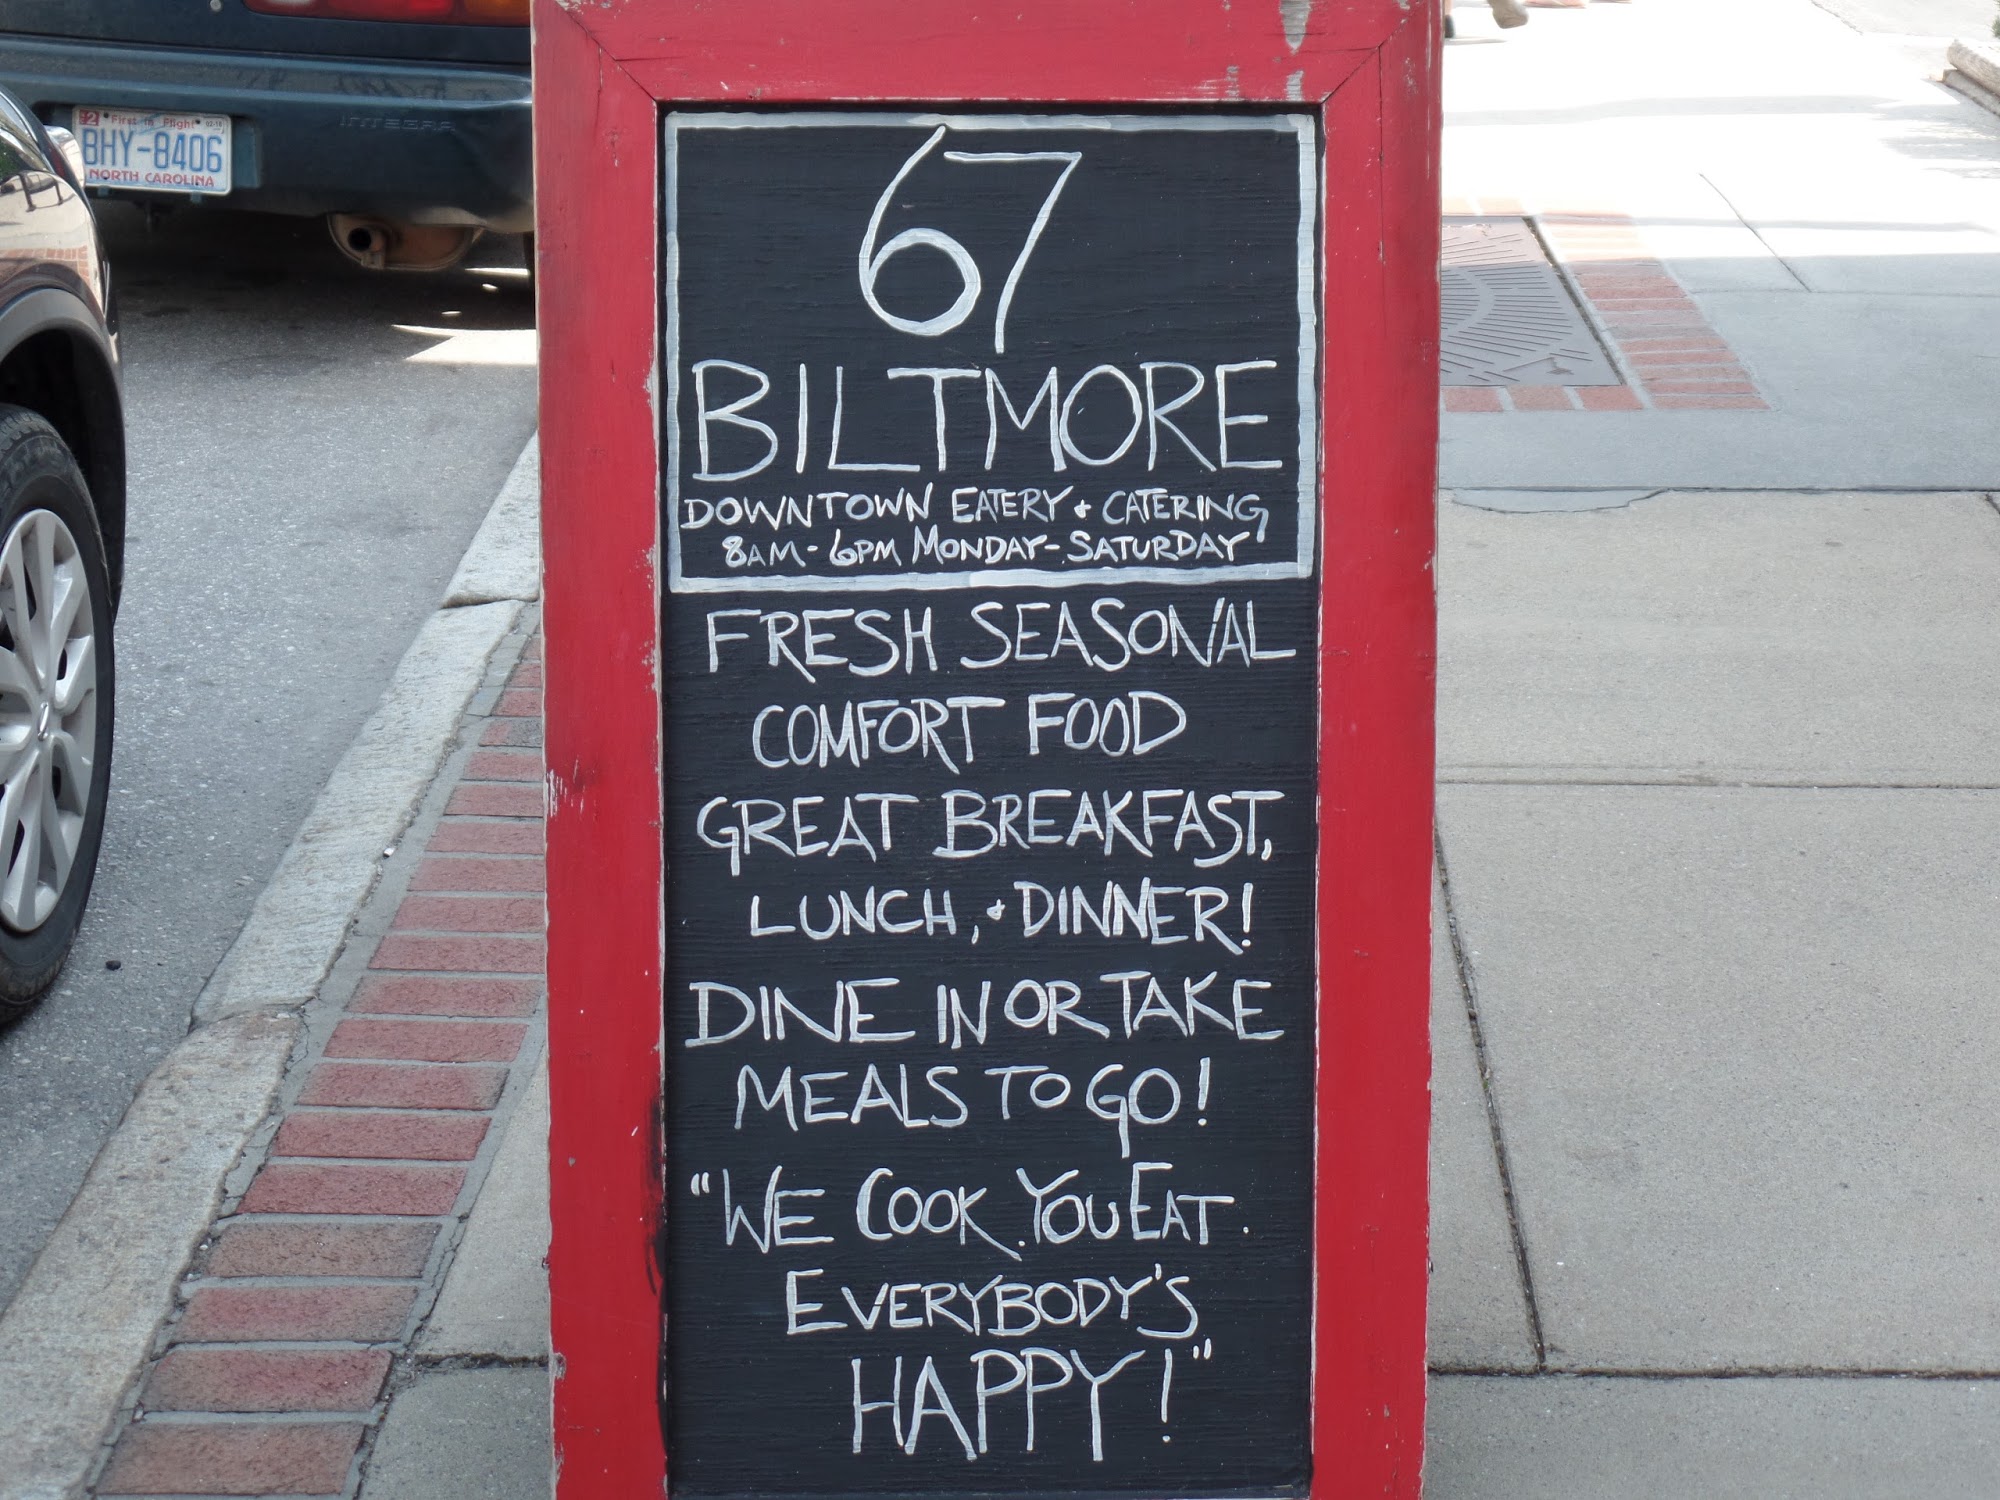 67
BILTMORE
DOWNTOWN EATERY + CATERING
8AM - 6PM MONDAY - SATURDAY
FRESH SEASONAL
COMFORT FOOD
GREAT BREAKFAST,
LUNCH, + DINNER!
DINE IN OR TAKE
MEALS TO GO!
"WE COOK. YOU EAT.
EVERYBODY'S
HAPPY!"
First in Flight
BHY-8406
NORTH CAROLINA
INTEGRA